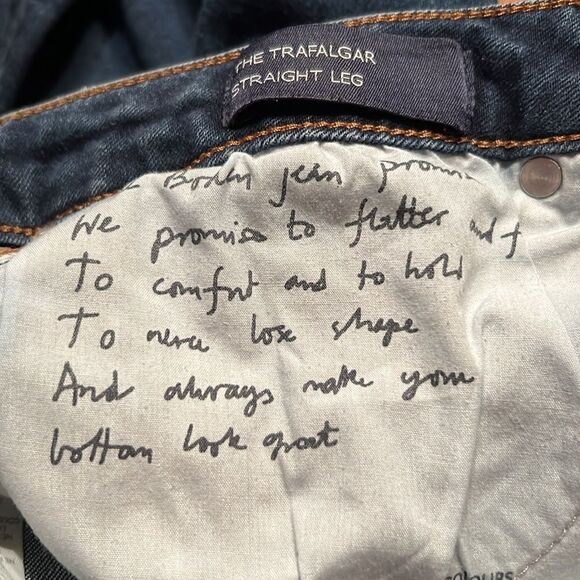 THE TRAFALGAR
STRAIGHT LEG
Boden jean promise
We promise to flatter and f
To comfort and to hold
To never lose shape
And always make your
bottom look great
colours